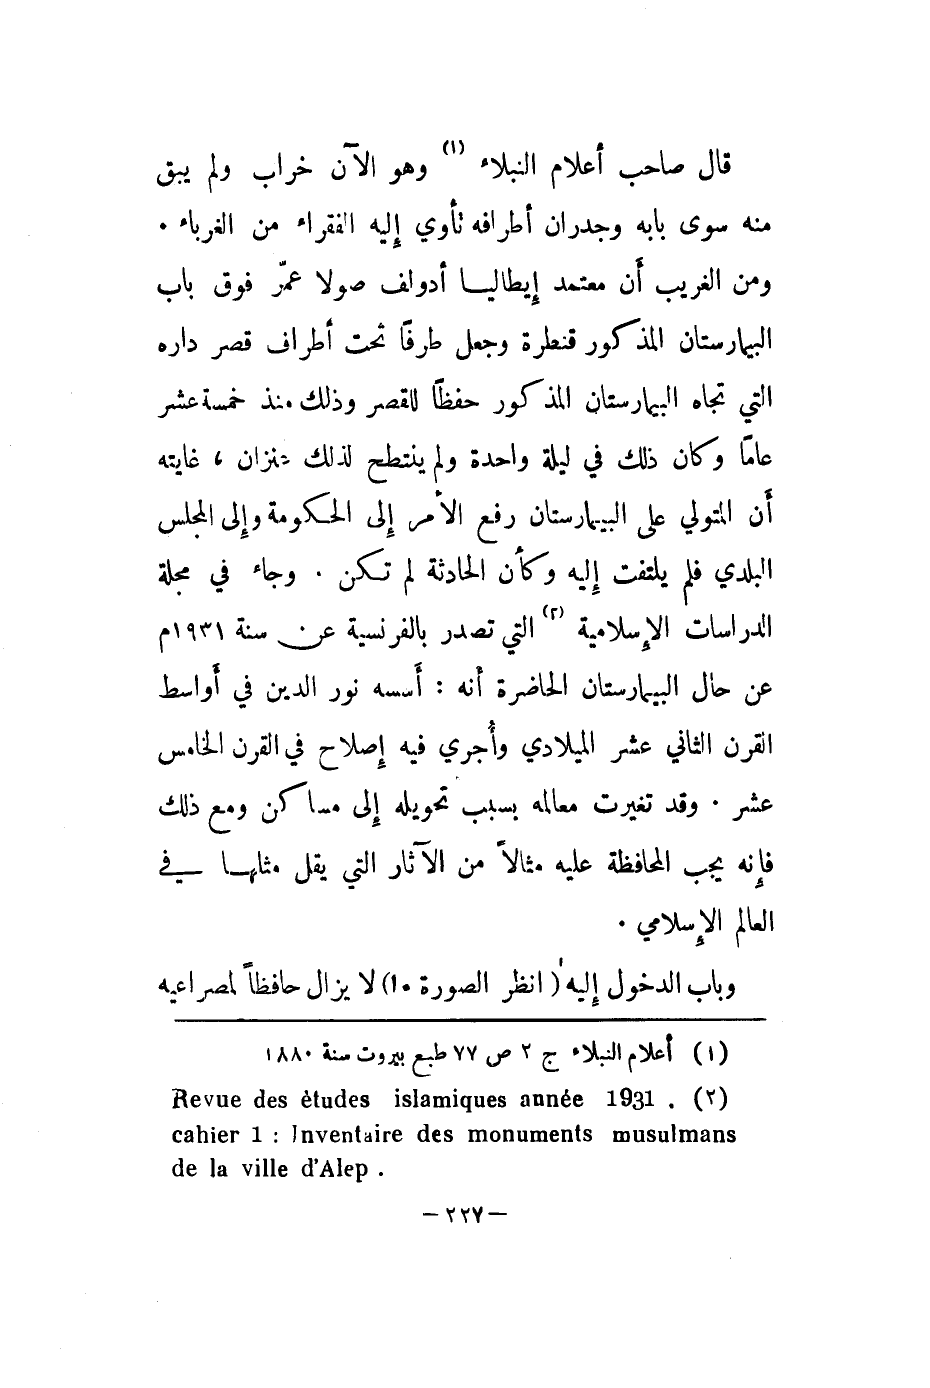 قال صاحب أعلام النبلاء (١) وهو الآن خراب ولم يبق
منه سوى بابه وجدران أطرافه تأوي إليه الفقراء من الغرباء .
ومن الغريب أن معتمد إيطاليـا أدولف صولا عمّر فوق باب
البيمارستان المذكور قنطرة وجعل طرفًا تحت أطراف قصر داره
التي تجاه البيمارستان المذكور حفظًا للقصر وذلك منذ خمسة عشر
عامًا وكان ذلك في ليلة واحدة ولم ينتطح لذلك عنزان ، غايته
أن المتولي على البيمارستان رفع الأمر إلى الحكومة وإلى المجلس
البلدي فلم يلتفت إليه وكأن الحادثة لم تكن . وجاء في مجلة
الدراسات الإسلامية (٢) التي تصدر بالفرنسية عن سنة ١٩٣١م
عن حال البيمارستان الحاضرة أنه : أسسه نور الدين في أواسط
القرن الثاني عشر الميلادي وأُجري فيه إصلاح في القرن الخامس
عشر . وقد تغيرت معالمه بسبب تحويله إلى مساكن ومع ذلك
فإنه يجب المحافظة عليه مثالاً من الآثار التي يقل مثلهـا في
العالم الإسلامي .
وباب الدخول إليه ( انظر الصورة ١٠) لا يزال حافظاً لمصراعيه
(١) أعلام النبلاء ج ٢ ص ٧٧ طبع بيروت سنة ١٨٨٠
Revue des études islamiques année 1931 . (٢)
cahier 1 : Inventaire des monuments musulmans
de la ville d'Alep .
— ٢٢٧ —